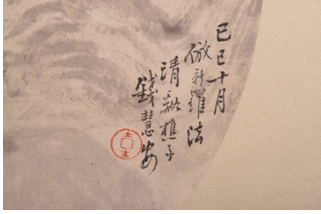 己巳十月
倣新羅法
清谿樵子
錢慧安